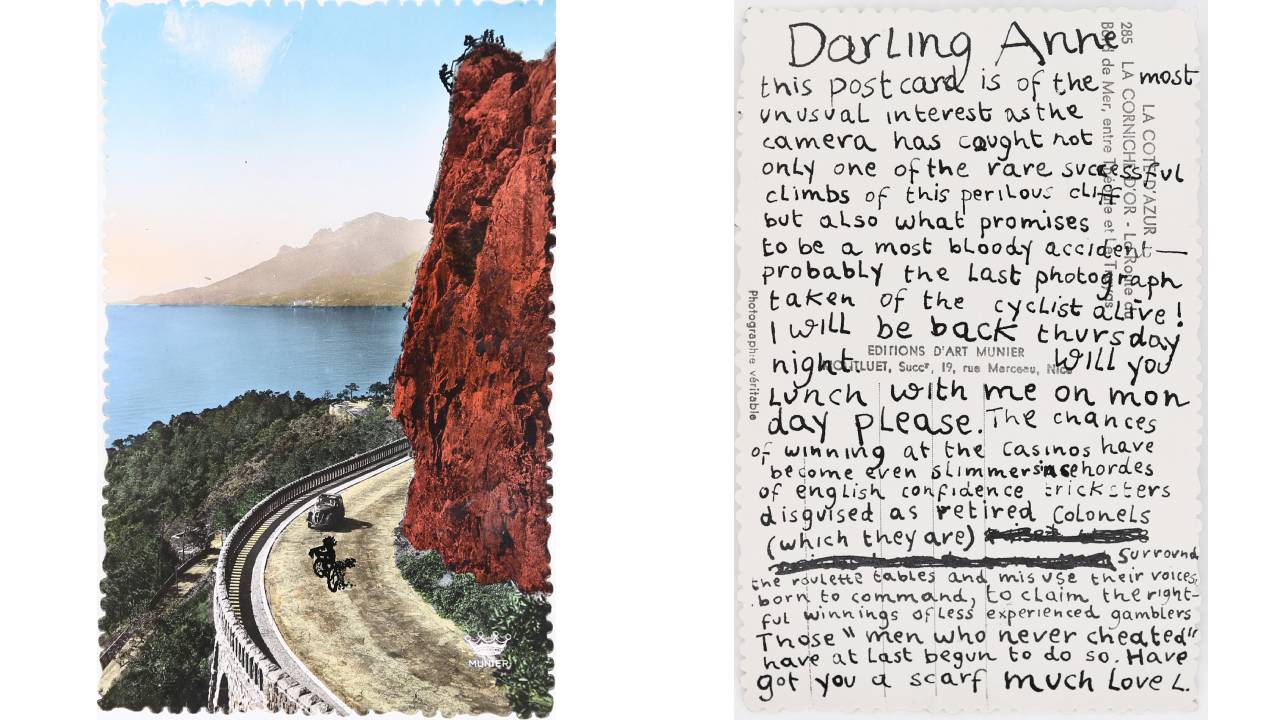 MUNIER
Darling Anne
this postcard is of the most
unusual interest as the
camera has caught not
only one of the rare successful
climbs of this perilous cliff
but also what promises
to be a most bloody accident —
probably the last photograph
taken of the cyclist alive!
I will be back thursday
night Will you
Lunch with me on mon
day please. The chances
of winning at the Casinos have
become even slimmer since hordes
of english confidence tricksters
disguised as retired Colonels
(which they are)
Surround
the roulette tables and misuse their voices,
born to command, to claim the right-
ful winnings of less experienced gamblers
Those "men who never cheated"
have at last begun to do so. Have
got you a scarf much Love L.
LA COTE D'AZUR
285 LA CORNICHE D'OR - La Route du
Bord de Mer, entre et Le Trayas
EDITIONS D'ART MUNIER
Succʳ, 19, rue Marceau, Nice
Photographie véritable